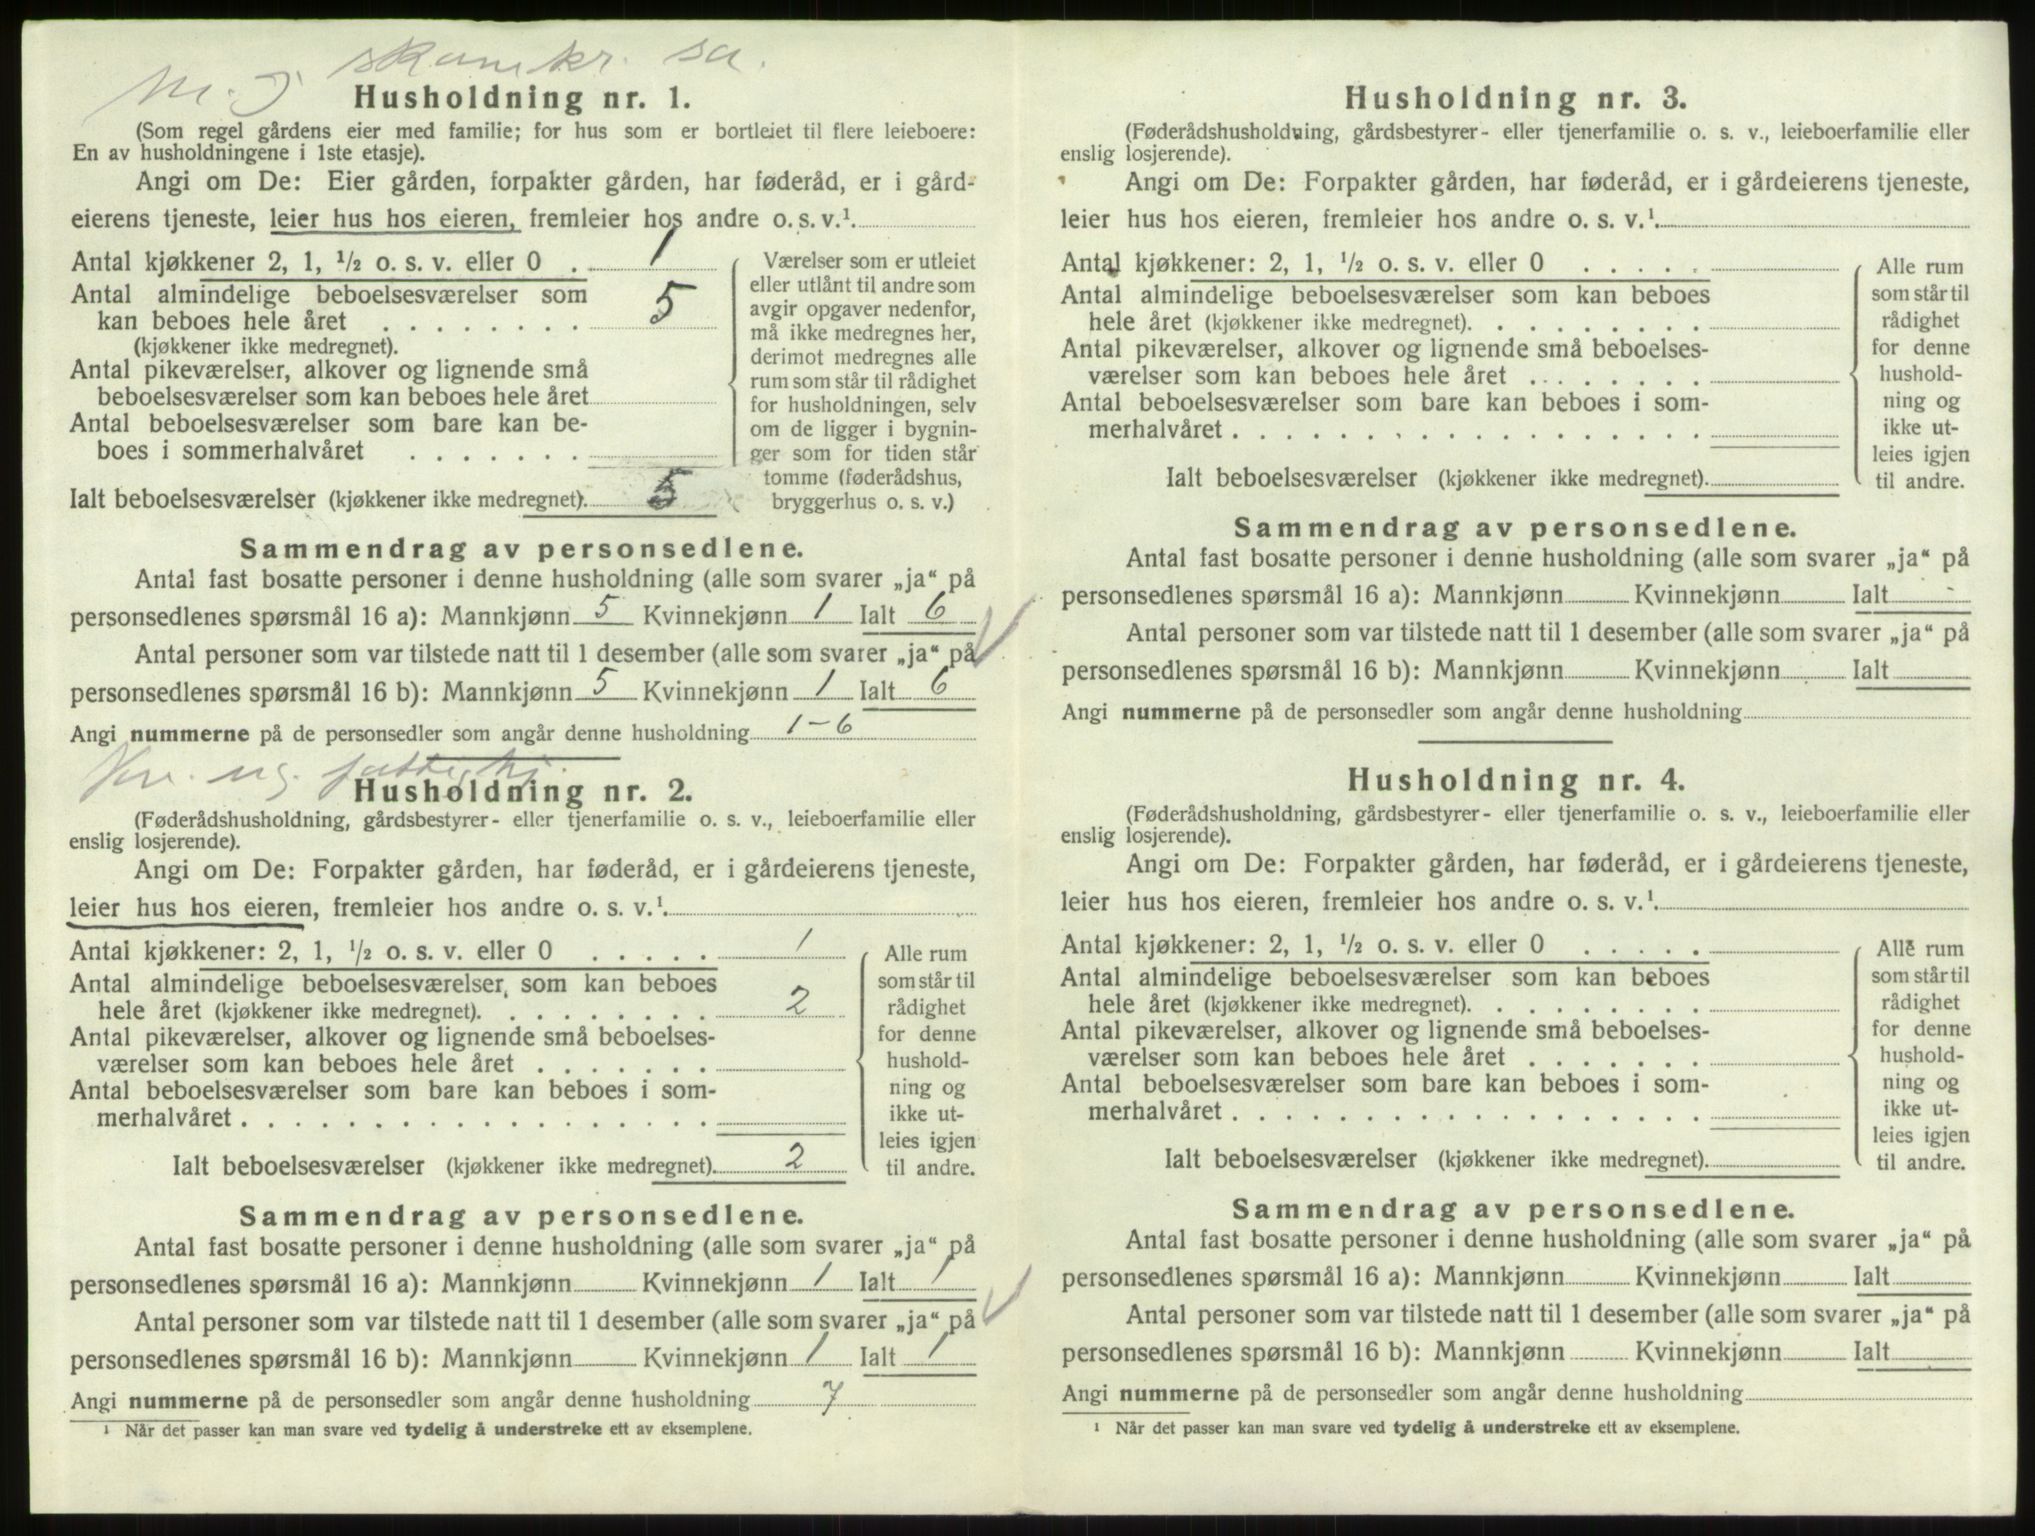 Husholdning nr. 1.
(Som regel gårdens eier med familie; for hus som er bortleiet til flere leieboere:
En av husholdningene i 1ste etasje).
Angi om De: Eier gården, forpakter gården, har føderåd, er i gård-
eierens tjeneste, leier hus hos eieren, fremleier hos andre o. s. v.¹.
Antal kjøkkener 2, 1, ½ o. s. v. eller 0 . 1
Antal almindelige beboelsesværelser som
kan beboes hele året . . . . . . . . 5
(kjøkkener ikke medregnet).
Antal pikeværelser, alkover og lignende små
beboelsesværelser som kan beboes hele året
Antal beboelsesværelser som bare kan be-
boes i sommerhalvåret . . . . . . .
Ialt beboelsesværelser (kjøkkener ikke medregnet). 5
Værelser som er utleiet
eller utlånt til andre som
avgir opgaver nedenfor,
må ikke medregnes her,
derimot medregnes alle
rum som står til rådighet
for husholdningen, selv
om de ligger i bygnin-
ger som for tiden står
tomme (føderådshus,
bryggerhus o. s. v.)
Sammendrag av personsedlene.
Antal fast bosatte personer i denne husholdning (alle som svarer „ja“ på
personsedlenes spørsmål 16 a): Mannkjønn 5 Kvinnekjønn 1 Ialt 6
Antal personer som var tilstede natt til 1 desember (alle som svarer „ja“ på
personsedlenes spørsmål 16 b): Mannkjønn 5 Kvinnekjønn 1 Ialt 6
Angi nummerne på de personsedler som angår denne husholdning 1-6
Husholdning nr. 2.
(Føderådshusholdning, gårdsbestyrer- eller tjenerfamilie o. s. v., leieboerfamilie eller
enslig losjerende).
Angi om De: Forpakter gården, har føderåd, er i gårdeierens tjeneste,
leier hus hos eieren, fremleier hos andre o. s. v.¹.
Antal kjøkkener: 2, 1, ½ o. s. v. eller 0 . . . . . 1
Antal almindelige beboelsesværelser som kan beboes
hele året (kjøkkener ikke medregnet). . . . . . . . . 2
Antal pikeværelser, alkover og lignende små beboelses-
værelser som kan beboes hele året . . . . . . .
Antal beboelsesværelser som bare kan beboes i som-
merhalvåret . . . . . . . . . . . . . . . . . .
Ialt beboelsesværelser (kjøkkener ikke medregnet). 2
Alle rum
som står til
rådighet
for denne
hushold-
ning og
ikke ut-
leies igjen
til andre.
Sammendrag av personsedlene.
Antal fast bosatte personer i denne husholdning (alle som svarer „ja“ på
personsedlenes spørsmål 16 a): Mannkjønn Kvinnekjønn 1 Ialt 1
Antal personer som var tilstede natt til 1 desember (alle som svarer „ja“ på
personsedlenes spørsmål 16 b): Mannkjønn Kvinnekjønn 1 Ialt 1
Angi nummerne på de personsedler som angår denne husholdning 7
¹ Når det passer kan man svare ved tydelig å understreke ett av eksemplene.
Husholdning nr. 3.
(Føderådshusholdning, gårdsbestyrer- eller tjenerfamilie o. s. v., leieboerfamilie eller
enslig losjerende).
Angi om De: Forpakter gården, har føderåd, er i gårdeierens tjeneste,
leier hus hos eieren, fremleier hos andre o. s. v.¹.
Antal kjøkkener: 2, 1, ½ o. s. v. eller 0 . . . . .
Antal almindelige beboelsesværelser som kan beboes
hele året (kjøkkener ikke medregnet). . . . . . . . .
Antal pikeværelser, alkover og lignende små beboelses-
værelser som kan beboes hele året . . . . . . .
Antal beboelsesværelser som bare kan beboes i som-
merhalvåret . . . . . . . . . . . . . . . . . .
Ialt beboelsesværelser (kjøkkener ikke medregnet).
Alle rum
som står til
rådighet
for denne
hushold-
ning og
ikke ut-
leies igjen
til andre.
Sammendrag av personsedlene.
Antal fast bosatte personer i denne husholdning (alle som svarer „ja“ på
personsedlenes spørsmål 16 a): Mannkjønn Kvinnekjønn Ialt
Antal personer som var tilstede natt til 1 desember (alle som svarer „ja“ på
personsedlenes spørsmål 16 b): Mannkjønn Kvinnekjønn Ialt
Angi nummerne på de personsedler som angår denne husholdning
Husholdning nr. 4.
(Føderådshusholdning, gårdsbestyrer- eller tjenerfamilie o. s. v., leieboerfamilie eller
enslig losjerende).
Angi om De: Forpakter gården, har føderåd, er i gårdeierens tjeneste,
leier hus hos eieren, fremleier hos andre o. s. v.¹.
Antal kjøkkener: 2, 1, ½ o. s. v. eller 0 . . . . .
Antal almindelige beboelsesværelser som kan beboes
hele året (kjøkkener ikke medregnet). . . . . . . . .
Antal pikeværelser, alkover og lignende små beboelses-
værelser som kan beboes hele året . . . . . . .
Antal beboelsesværelser som bare kan beboes i som-
merhalvåret . . . . . . . . . . . . . . . . . .
Ialt beboelsesværelser (kjøkkener ikke medregnet).
Alle rum
som står til
rådighet
for denne
hushold-
ning og
ikke ut-
leies igjen
til andre.
Sammendrag av personsedlene.
Antal fast bosatte personer i denne husholdning (alle som svarer „ja“ på
personsedlenes spørsmål 16 a): Mannkjønn Kvinnekjønn Ialt
Antal personer som var tilstede natt til 1 desember (alle som svarer „ja“ på
personsedlenes spørsmål 16 b): Mannkjønn Kvinnekjønn Ialt
Angi nummerne på de personsedler som angår denne husholdning
¹ Når det passer kan man svare ved tydelig å understreke ett av eksemplene.